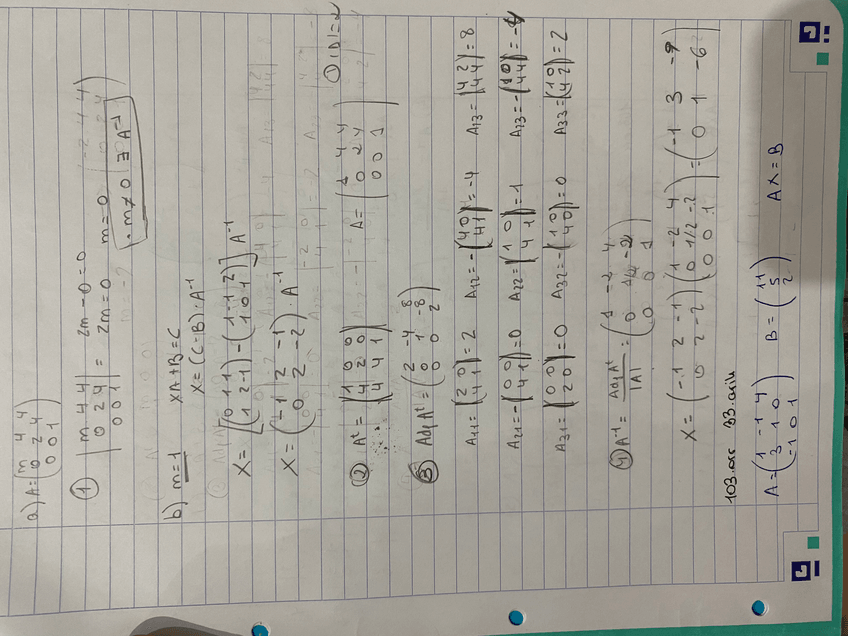 a) A = (m 4 4
0 2 4
0 0 1)
① |m 4 4
0 2 4
0 0 1| = 2m - 0 = 0
2m = 0 m = 0
· m ≠ 0 ∃ A⁻¹
b) m = 1 XA + B = C
X = (C - B) · A⁻¹
X = [(0 1 1
1 2 -1) - (1 -1 2
1 0 1)] A⁻¹
X = (-1 2 -1
0 2 -2) · A⁻¹
② Aᵗ = (1 0 0
4 2 0
4 4 1) A = (1 4 4
0 2 4
0 0 1) ① |D| = 2
③ Adj Aᵗ = (2 -4 8
0 1 -8
0 0 2)
A₁₁ = |2 0
4 1| = 2 A₁₂ = -|4 0
4 1| = -4 A₁₃ = |4 2
4 4| = 8
A₂₁ = -|0 0
4 1| = 0 A₂₂ = |1 0
4 1| = 1 A₂₃ = -|1 0
4 4| = -4
A₃₁ = |0 0
2 0| = 0 A₃₂ = -|1 0
4 0| = 0 A₃₃ = |1 0
4 2| = 2
④ A⁻¹ = Adj Aᵗ / |A| = (1 -2 4
0 1/2 -2
0 0 1)
X = (-1 2 -1
0 2 -2) (1 -2 4
0 1/2 -2
0 0 1) = (-1 3 -9
0 1 -6)
103.orr 33.arik
A = (1 -1 4
3 1 0
-1 0 1) B = (11
5
2) AX = B